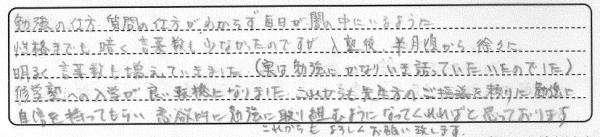 勉強の仕方、質問の仕方がわからず毎日が闇の中にいるように
性格までも暗く言葉数も少なかったのですが、入塾後、半月後から徐々に
明るく、言葉数も増えていきました(実は勉強にかなりいき詰っていたのでした)
修学塾への入学が良い転機になりました。これからも先生方のご指導を頼りに勉強に
自信を持ってもらい意欲的に勉強に取り組むようになってくれればと思っております
これからもよろしくお願い致します。